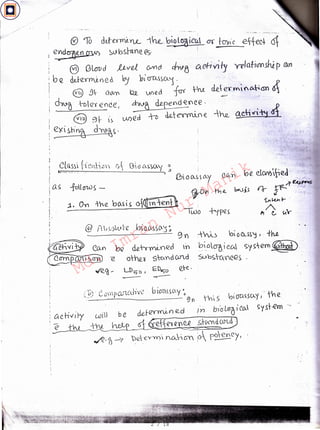 (v) To determine the biological or toxic effect of
endogenous substances
(vi) Blood level and drug activity relationship can
be determined by bioassay.
(vii) It can be used for the determination of
drug tolerence, drug dependence.
(viii) It is used to determine the activity of
existing drugs.
Classification of Bioassay :
Bioassay can be classified
as follows —
On the basis of
1. On the basis of intent :
Intent
Two types
@ Absolute bioassay: In this bioassay, the
activity can be determined in biological system without
comparison c other standard substances.
eg. LD50, ED50 etc.
(b) Comparative bioassay: In this bioassay, the
activity will be determined in biological system
c the the help of refference standard
e.g → Determination of potency.
Md. Imran Nur Manik